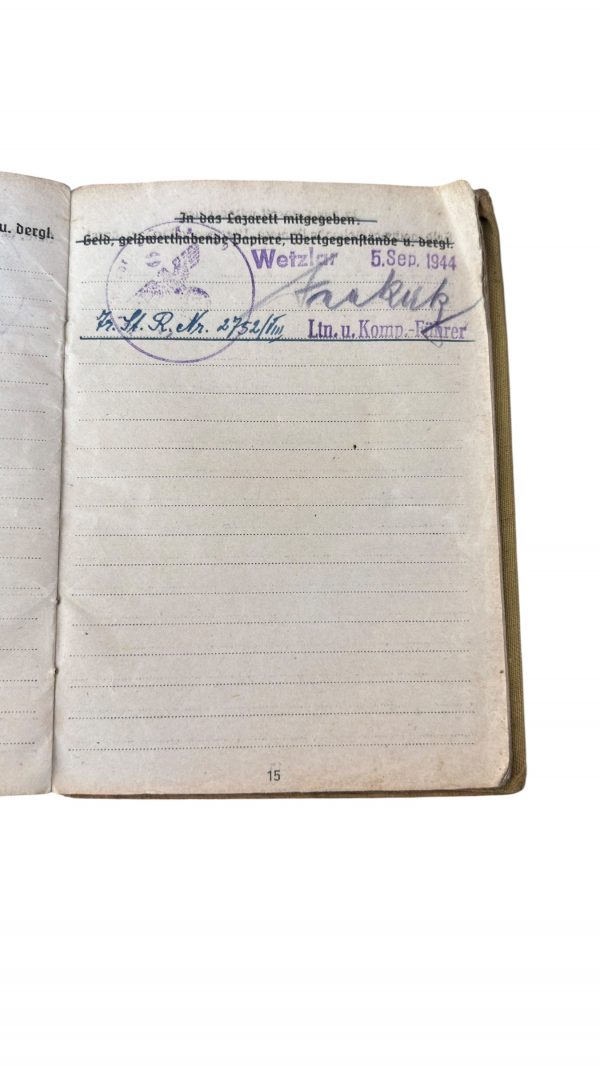 u. dergl.
In das Lazarett mitgegeben:
Geld, geldwerthabende Papiere, Wertgegenstände u. dergl.
Wetzlar 5. Sep. 1944
Tr. St. R. Nr. 2752/VIII Ltn. u. Komp.-Führer
15